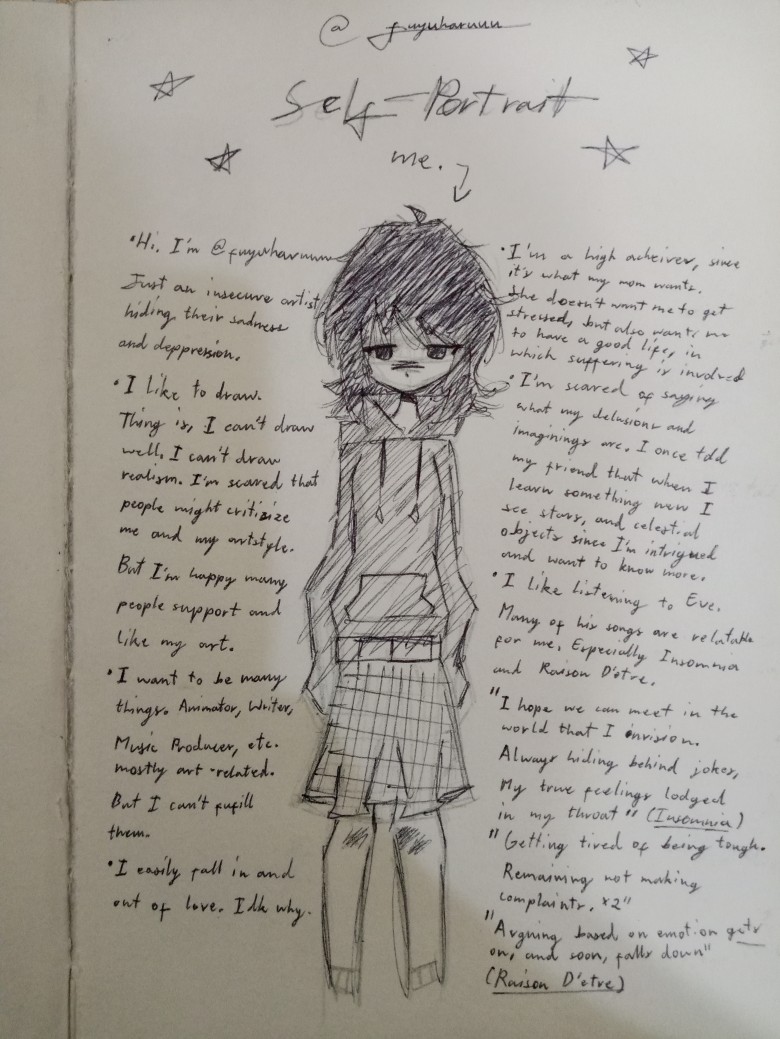 @fuyuharuuu
Self-Portrait
me.
•Hi. I'm @fuyuharuuu
Just an insecure artist
hiding their sadness
and deppression.
•I like to draw.
Thing is, I can't draw
well. I can't draw
realism. I'm scared that
people might critisize
me and my artstyle.
But I'm happy many
people support and
like my art.
•I want to be many
things. Animator, Writer,
Music Producer, etc.
mostly art-related.
But I can't fufill
them.
•I easily fall in and
out of love. Idk why.
•I'm a high acheiver, since
it's what my mom wants.
She doesn't want me to get
stressed, but also wants me
to have a good life, in
which suffering is involved
•I'm scared of saying
what my delusions and
imaginings are. I once told
my friend that when I
learn something new I
see stars, and celestial
objects since I'm intrigued
and want to know more.
•I like listening to Eve.
Many of his songs are relatable
for me. Especially Insomnia
and Raison D'etre.
"I hope we can meet in the
world that I envision.
Always hiding behind jokes,
My true feelings lodged
in my throat" (Insomnia)
"Getting tired of being tough.
Remaining not making
complaints. x2"
"Arguing based on emotion gets
on, and soon, falls down"
(Raison D'etre)